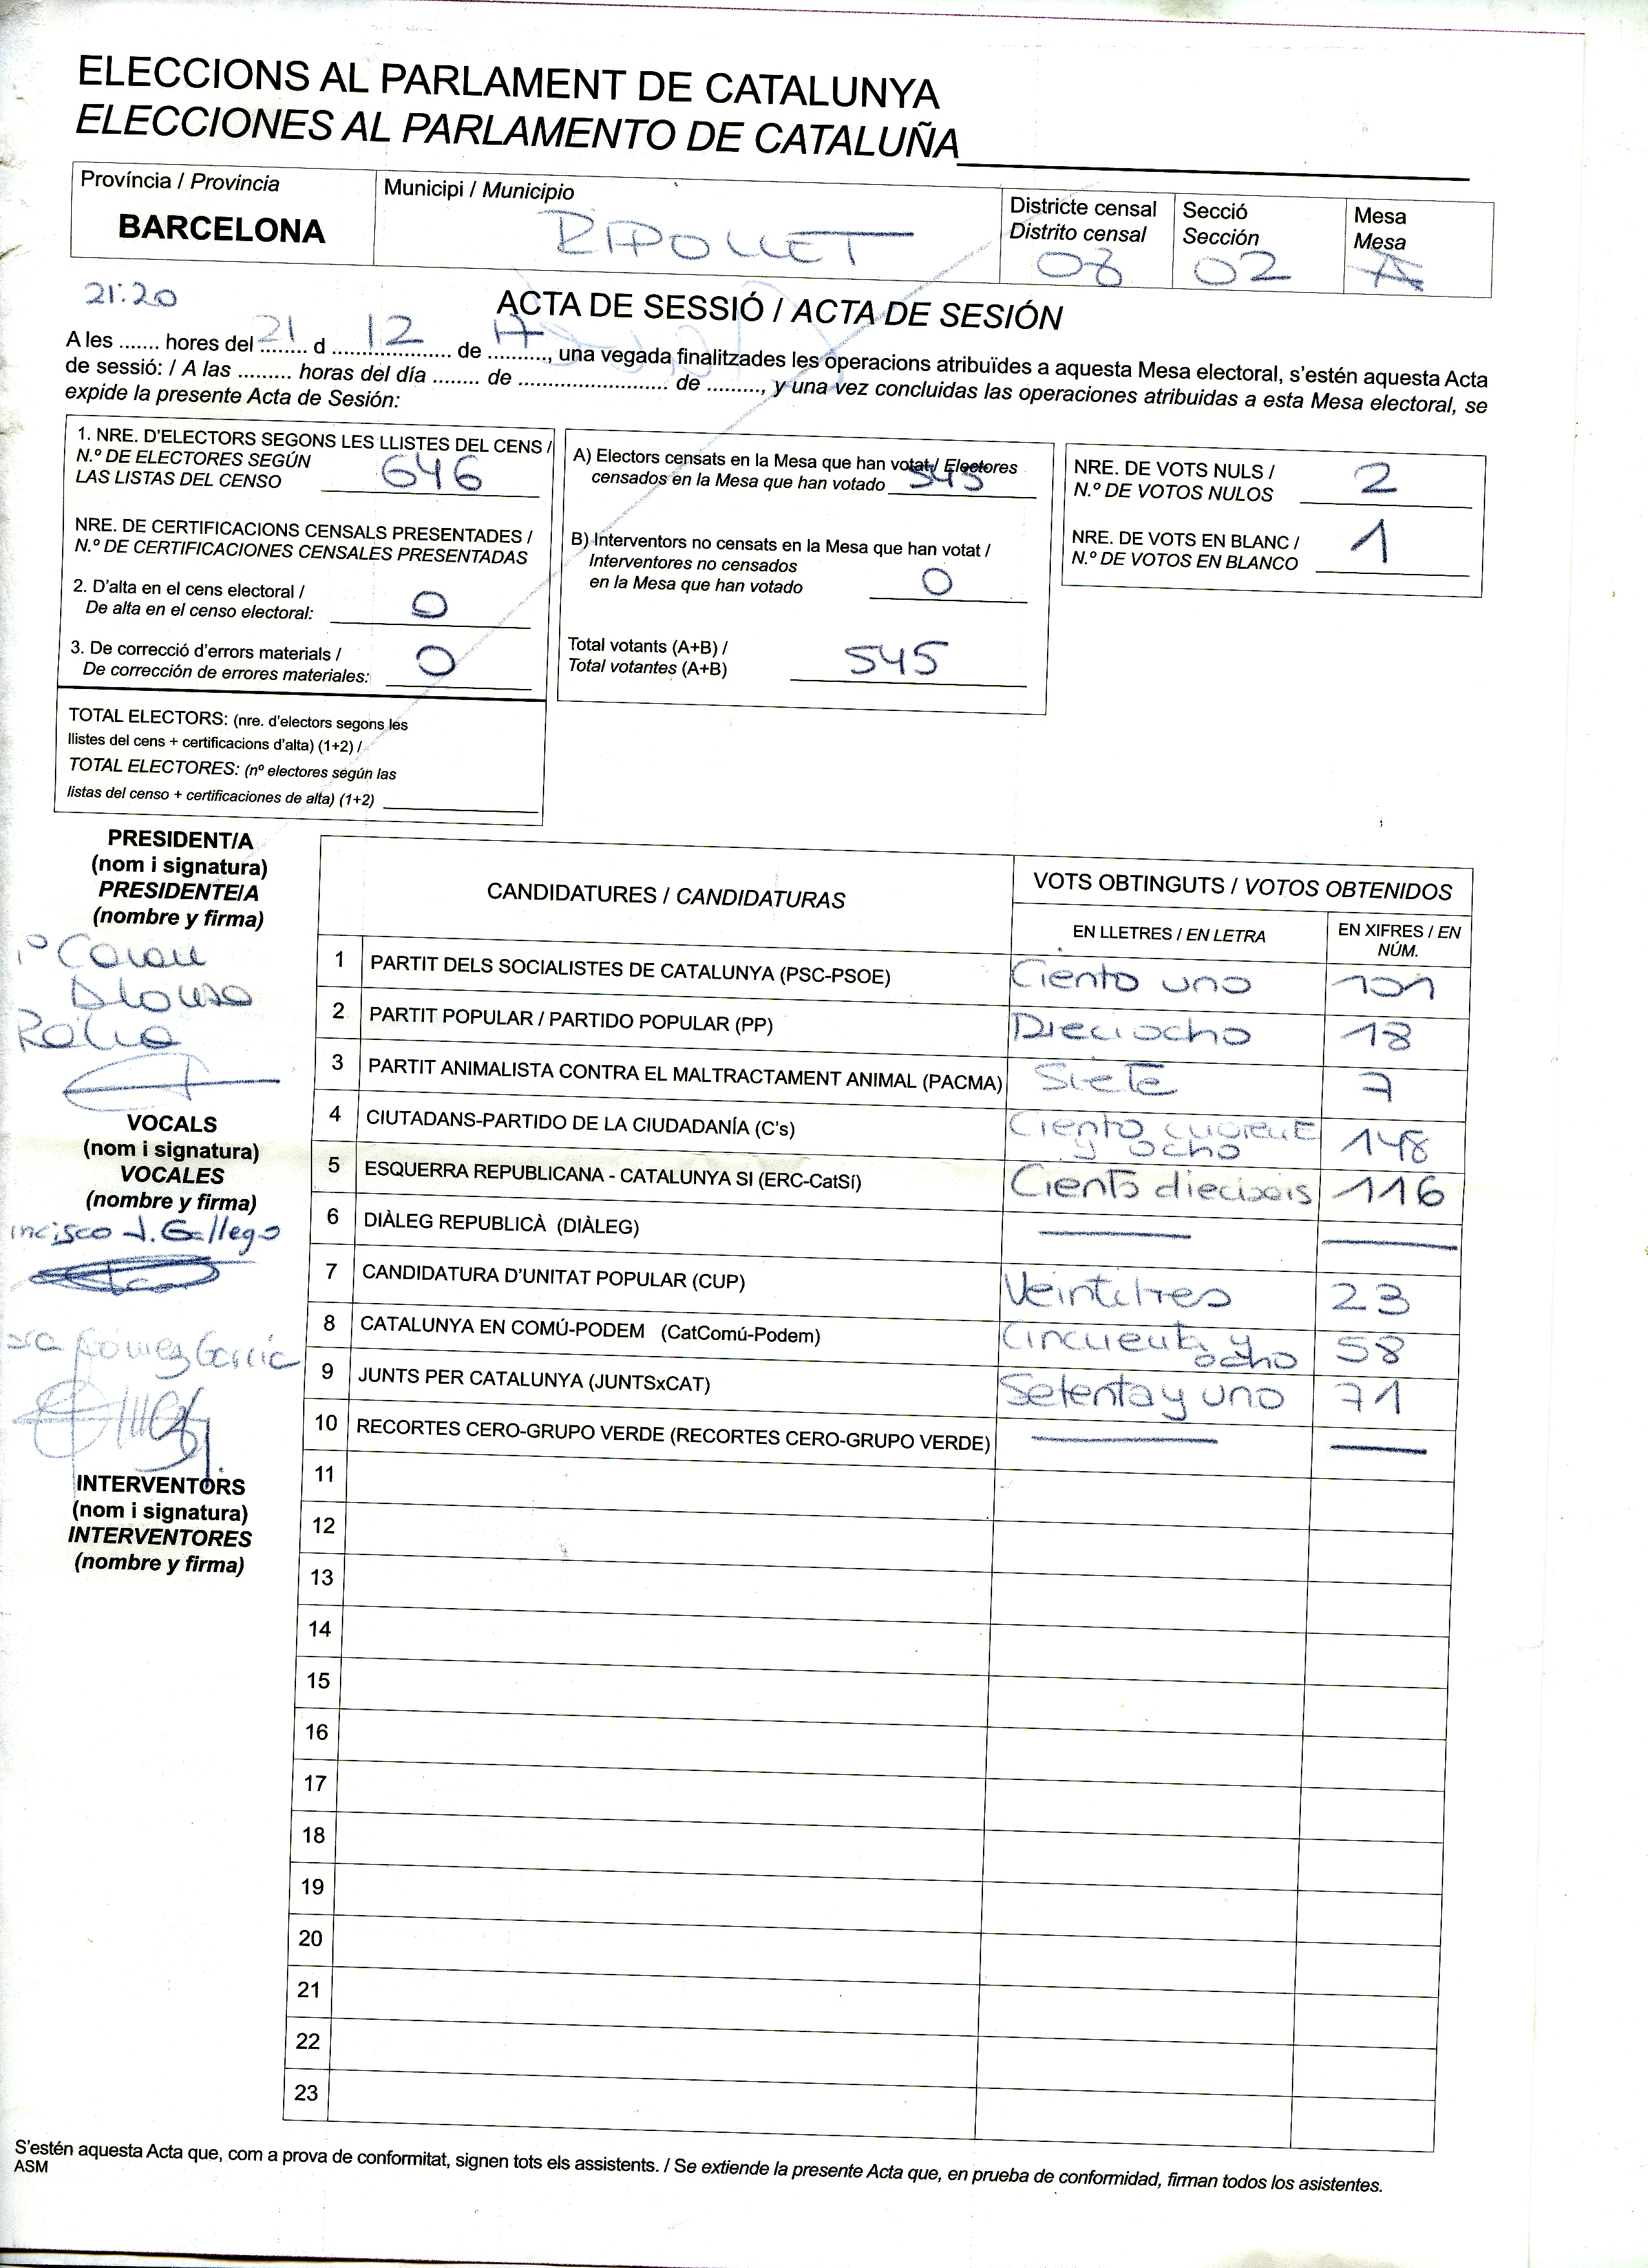 ELECCIONS AL PARLAMENT DE CATALUNYA
ELECCIONES AL PARLAMENTO DE CATALUÑA
Província / Provincia
BARCELONA
Municipi / Municipio
RIPOLLET
Districte censal
Distrito censal
08
Secció
Sección
02
Mesa
Mesa
A
21:20
ACTA DE SESSIÓ / ACTA DE SESIÓN
A les ....... hores del 21 d 12 de 17, una vegada finalitzades les operacions atribuïdes a aquesta Mesa electoral, s'estén aquesta Acta
de sessió: / A las ......... horas del día ........ de .......................... de .........., y una vez concluidas las operaciones atribuidas a esta Mesa electoral, se
expide la presente Acta de Sesión:
1. NRE. D'ELECTORS SEGONS LES LLISTES DEL CENS /
N.º DE ELECTORES SEGÚN
LAS LISTAS DEL CENSO 646
NRE. DE CERTIFICACIONS CENSALS PRESENTADES /
N.º DE CERTIFICACIONES CENSALES PRESENTADAS
2. D'alta en el cens electoral /
De alta en el censo electoral: 0
3. De correcció d'errors materials /
De corrección de errores materiales: 0
TOTAL ELECTORS: (nre. d'electors segons les
llistes del cens + certificacions d'alta) (1+2) /
TOTAL ELECTORES: (nº electores según las
listas del censo + certificaciones de alta) (1+2)
A) Electors censats en la Mesa que han votat / Electores
censados en la Mesa que han votado 545
B) Interventors no censats en la Mesa que han votat /
Interventores no censados
en la Mesa que han votado 0
Total votants (A+B) /
Total votantes (A+B) 545
NRE. DE VOTS NULS /
N.º DE VOTOS NULOS 2
NRE. DE VOTS EN BLANC /
N.º DE VOTOS EN BLANCO 1
PRESIDENT/A
(nom i signatura)
PRESIDENTE/A
(nombre y firma)
VOCALS
(nom i signatura)
VOCALES
(nombre y firma)
J. Gallego
Gómez García
INTERVENTORS
(nom i signatura)
INTERVENTORES
(nombre y firma)
CANDIDATURES / CANDIDATURAS
VOTS OBTINGUTS / VOTOS OBTENIDOS
EN LLETRES / EN LETRA
EN XIFRES / EN
NÚM.
1 PARTIT DELS SOCIALISTES DE CATALUNYA (PSC-PSOE) Ciento uno 101
2 PARTIT POPULAR / PARTIDO POPULAR (PP) Dieciocho 18
3 PARTIT ANIMALISTA CONTRA EL MALTRACTAMENT ANIMAL (PACMA) Siete 7
4 CIUTADANS-PARTIDO DE LA CIUDADANÍA (C's) Ciento y ocho 148
5 ESQUERRA REPUBLICANA - CATALUNYA SI (ERC-CatSí) Ciento dieciseis 116
6 DIÀLEG REPUBLICÀ (DIÀLEG)
7 CANDIDATURA D'UNITAT POPULAR (CUP) Veintitres 23
8 CATALUNYA EN COMÚ-PODEM (CatComú-Podem) Cincuenta y ocho 58
9 JUNTS PER CATALUNYA (JUNTSxCAT) Setenta y uno 71
10 RECORTES CERO-GRUPO VERDE (RECORTES CERO-GRUPO VERDE)
11
12
13
14
15
16
17
18
19
20
21
22
23
S'estén aquesta Acta que, com a prova de conformitat, signen tots els assistents. / Se extiende la presente Acta que, en prueba de conformidad, firman todos los asistentes.
ASM